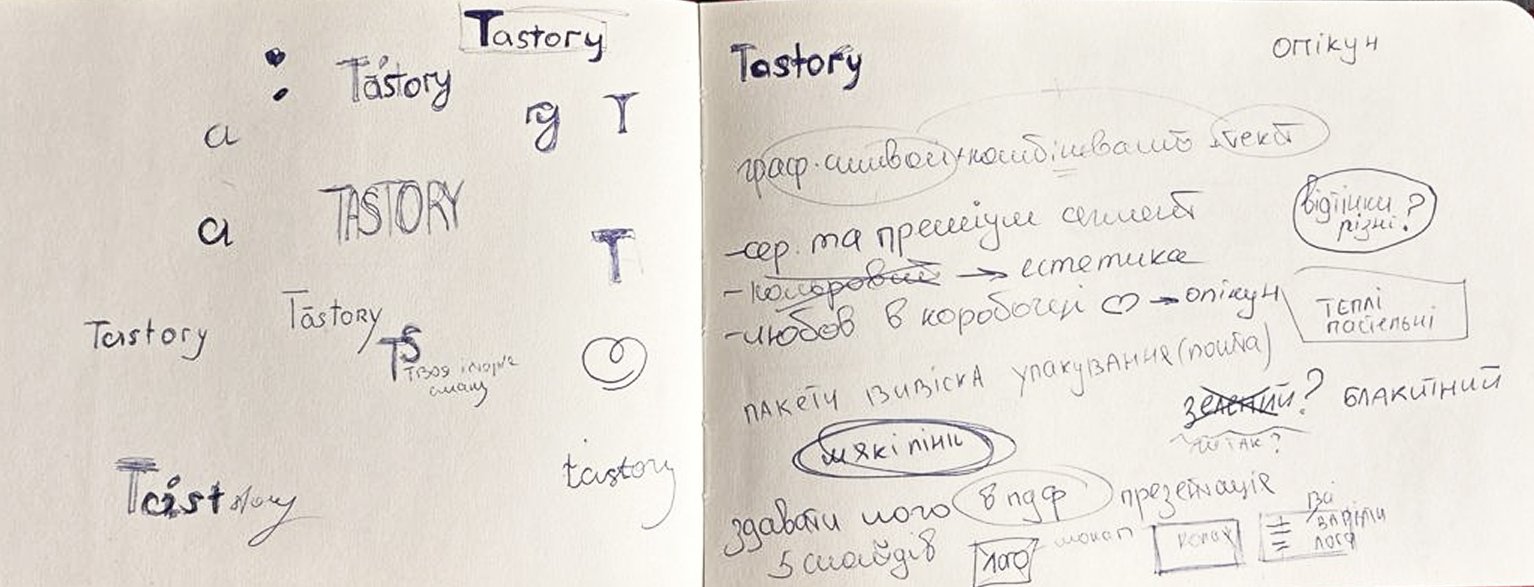 Tastory
Tastory
a
rg T
TASTORY
a
T
Tastory
Tastory
TS
твоя історія
смаку
Tast story
tastory
Tastory
опікун
граф. символ + комбінований текст
відтінки
різні?
-сер. та преміум сегмент
-кольоровий → естетика
-любов в коробочці ♡ → опікун
теплі
пастельні
пакети вивіска упакування (пошта)
зелений? блакитний
чи так?
м'які лінії
здавати лого в пдф презентація
5 слайдів
лого
мокап
варіанти
лого